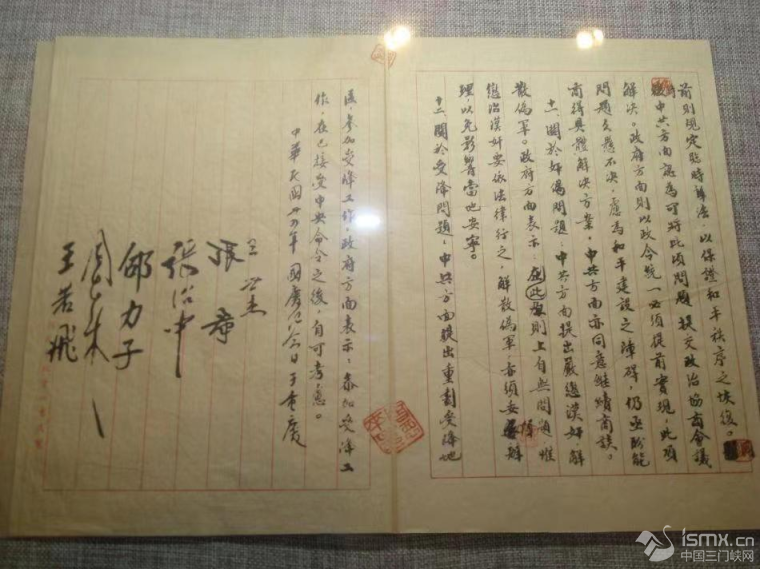 前則規定臨時辦法，以保證和平秩序之恢復。
後中共方面認為可將此項問題提交政治協商會議
解决。政府方面則以政令統一必須提前實現，此項
問題久懸不决，應為和平建設之障碍，仍亟盼能
商得具體解决方案。中共方面亦同意繼續商談。
十一、關於奸偽問題：中共方面提出嚴懲漢奸，解
散偽軍。政府方面表示：在此原則上自無問題，惟
懲治漢奸要依法律行之，解散偽軍，亦須妥慎辦
理，以免影響當地安寧。
十二、關於受降問題：中共方面提出重劃受降地
區，參加受降工作，政府方面表示，參加受降工
作，在已接受中央命令之後，自可考慮。
中華民國卅四年國慶紀念日于重慶
王世杰
張羣
張治中
邵力子
周恩來
王若飛
ismx.cn
中国三门峡网